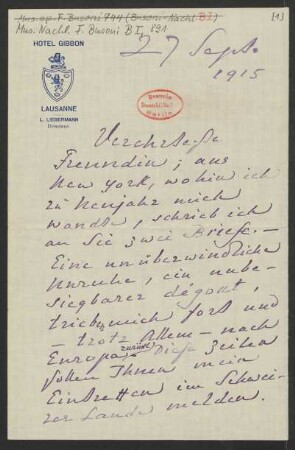 Mus. ep. F. Busoni 794 (Busoni-Nachl. B I) [1]
Mus. Nachl. F. Busoni B I, 891
HOTEL GIBBON
LAUSANNE
L. LIEBERMANN
27 Sept.
1915
Verehrteste
Freundin; aus
New York, wohin ich
zu Neujahr mich
wandte, schrieb ich
an Sie zwei Briefe. —
Eine unüberwindliche
Unruhe, ein unbe-
siegbarer dégoût,
trieben mich fort und
— trotz Allem — nach
Europa zurück. Diese Zeilen
sollen Ihnen mein
Eintreffen im Schwei-
zer Lande melden.